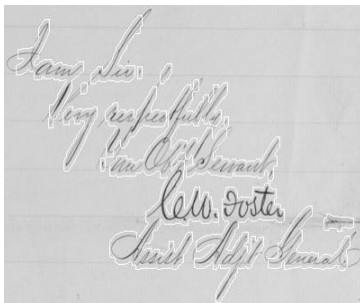 I am, Sir,
Very respectfully,
Your Obt Servant,
C.W. Foster
Assist Adjt General